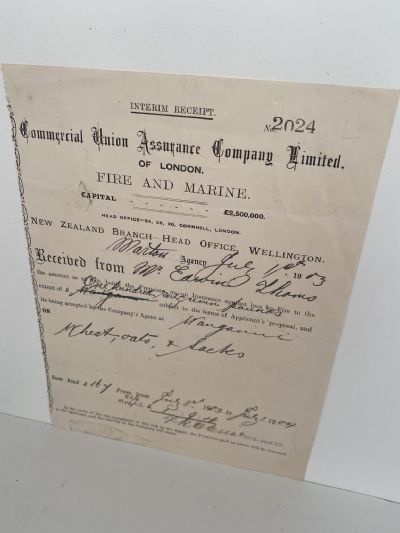 INTERIM RECEIPT.
No. 2024
Commercial Union Assurance Company Limited.
OF LONDON.
FIRE AND MARINE.
CAPITAL £2,500,000.
HEAD OFFICE—24, 25, 26, CORNHILL, LONDON.
NEW ZEALAND BRANCH—HEAD OFFICE, WELLINGTON.
Marton Agency July 1st 1903
Received from Mr. Edwin Thoms
the amount as the Premium on an Insurance against loss by Fire to the
extent of £ hundred pounds subject to the terms of Applicant's proposal, and
its being accepted by the Company's Agent at Wanganui
ON
Wheat, oats, & Sacks
Sum Assd £167 Prem. from July 1st 1903 to July 1 1904
SUB-AGENT.